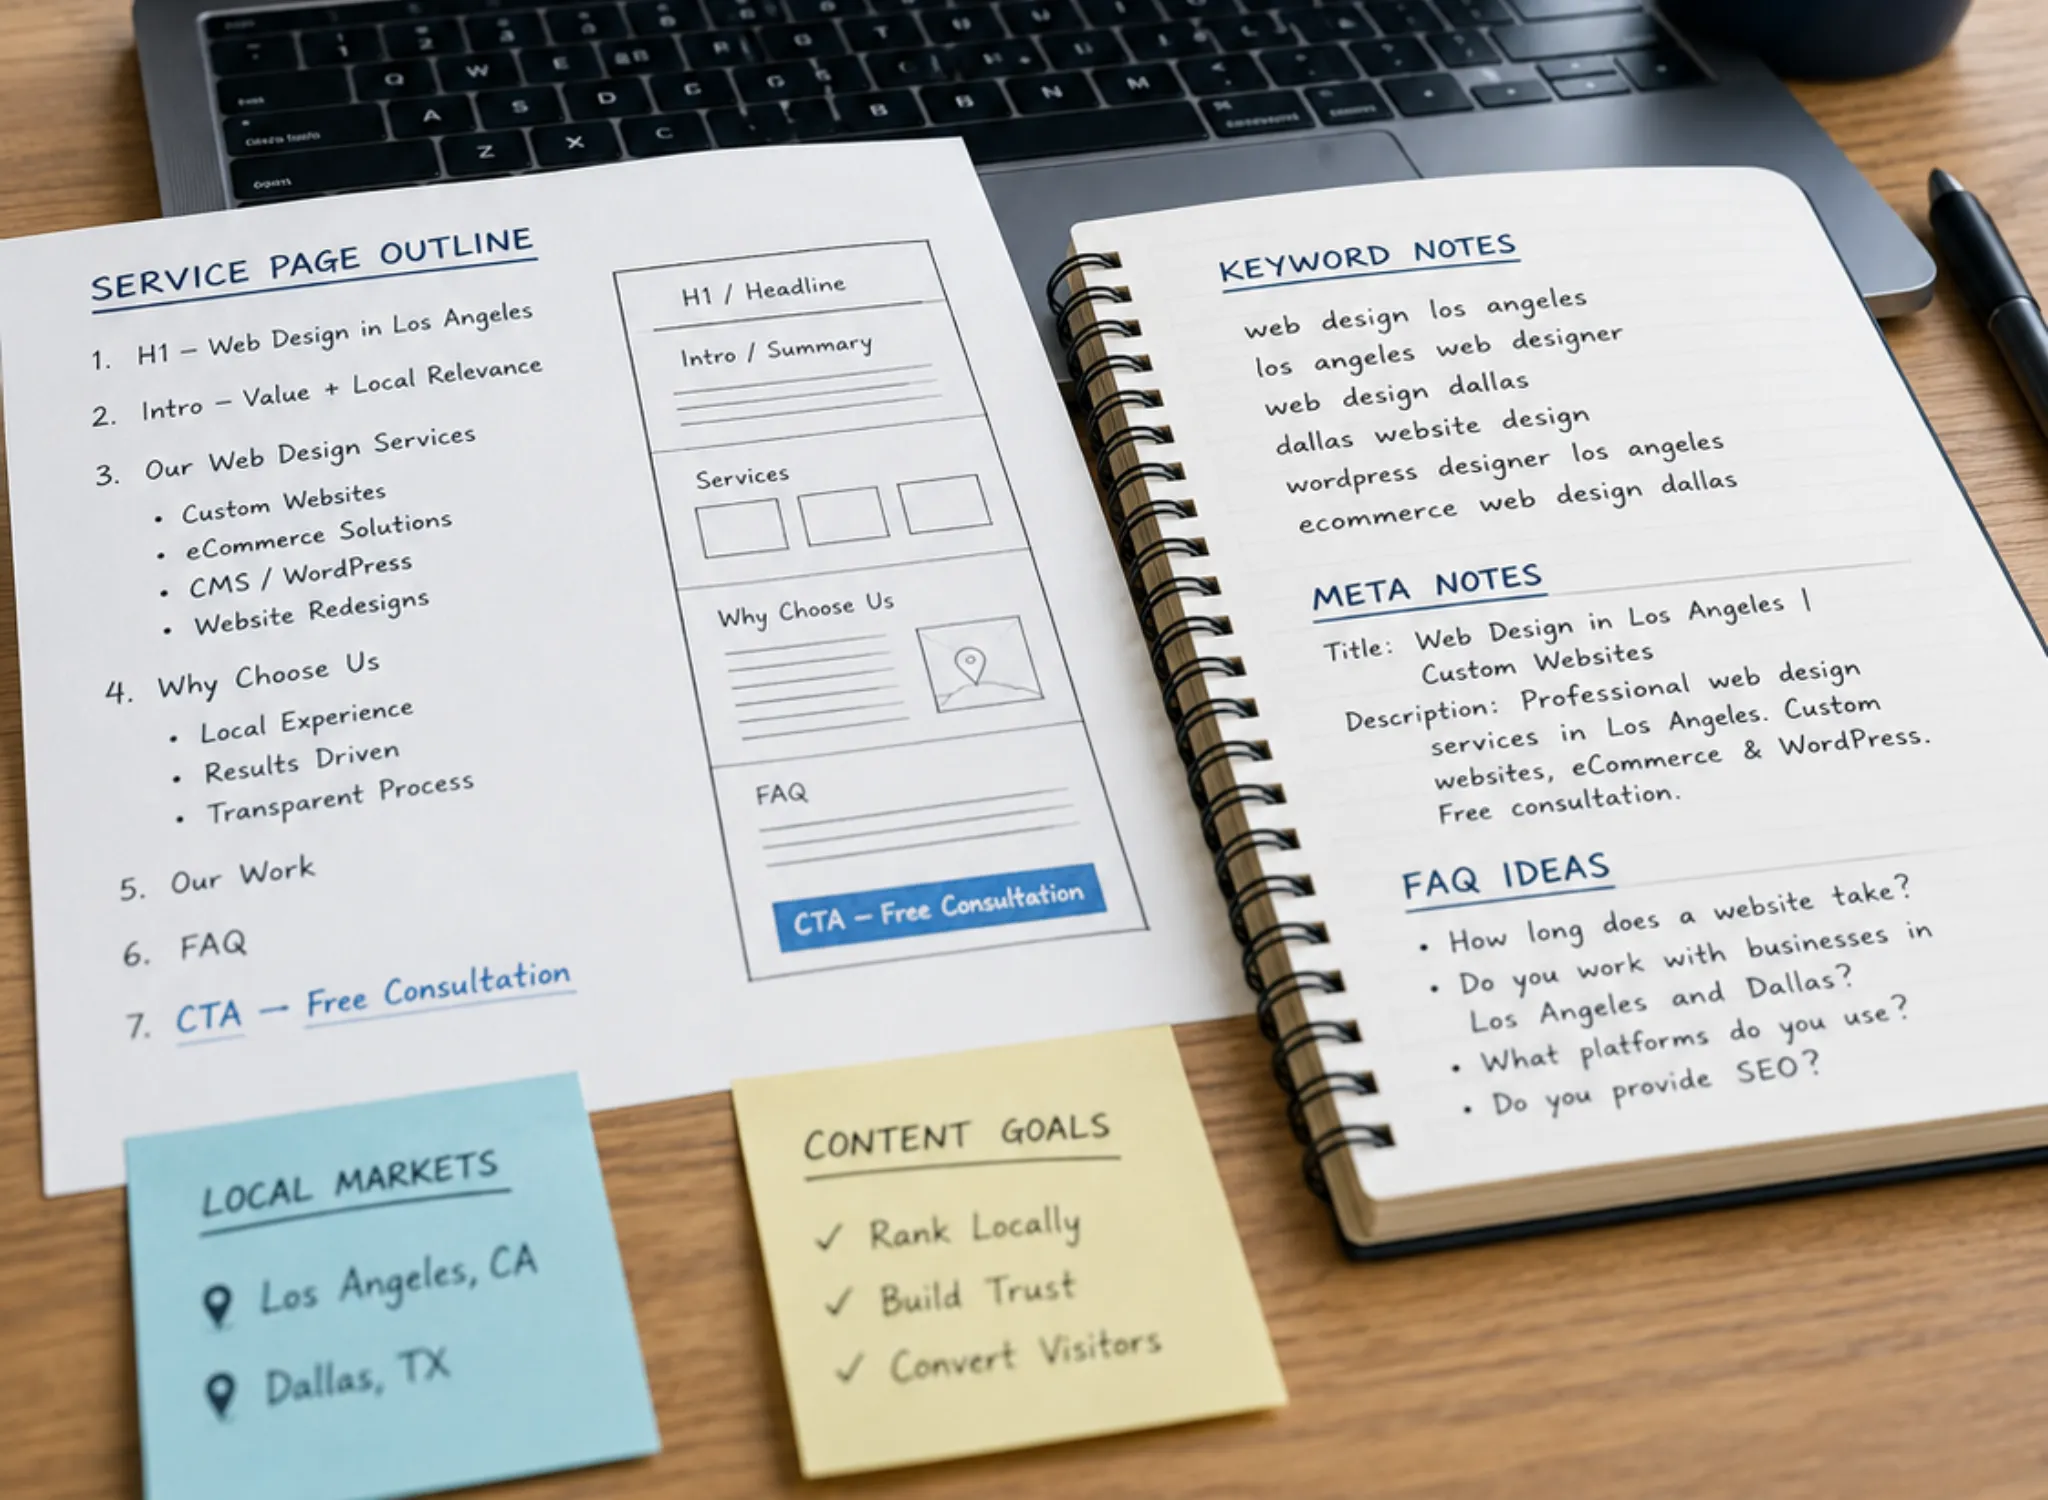 SERVICE PAGE OUTLINE
1. H1 – Web Design in Los Angeles
2. Intro – Value + Local Relevance
3. Our Web Design Services
• Custom Websites
• eCommerce Solutions
• CMS / WordPress
• Website Redesigns
4. Why Choose Us
• Local Experience
• Results Driven
• Transparent Process
5. Our Work
6. FAQ
7. CTA – Free Consultation
H1 / Headline
Intro / Summary
Services
Why Choose Us
FAQ
CTA – Free Consultation
KEYWORD NOTES
web design los angeles
los angeles web designer
web design dallas
dallas website design
wordpress designer los angeles
ecommerce web design dallas
META NOTES
Title: Web Design in Los Angeles |
Custom Websites
Description: Professional web design
services in Los Angeles. Custom
websites, eCommerce & WordPress.
Free consultation.
FAQ IDEAS
• How long does a website take?
• Do you work with businesses in
Los Angeles and Dallas?
• What platforms do you use?
• Do you provide SEO?
LOCAL MARKETS
Los Angeles, CA
Dallas, TX
CONTENT GOALS
✓ Rank Locally
✓ Build Trust
✓ Convert Visitors